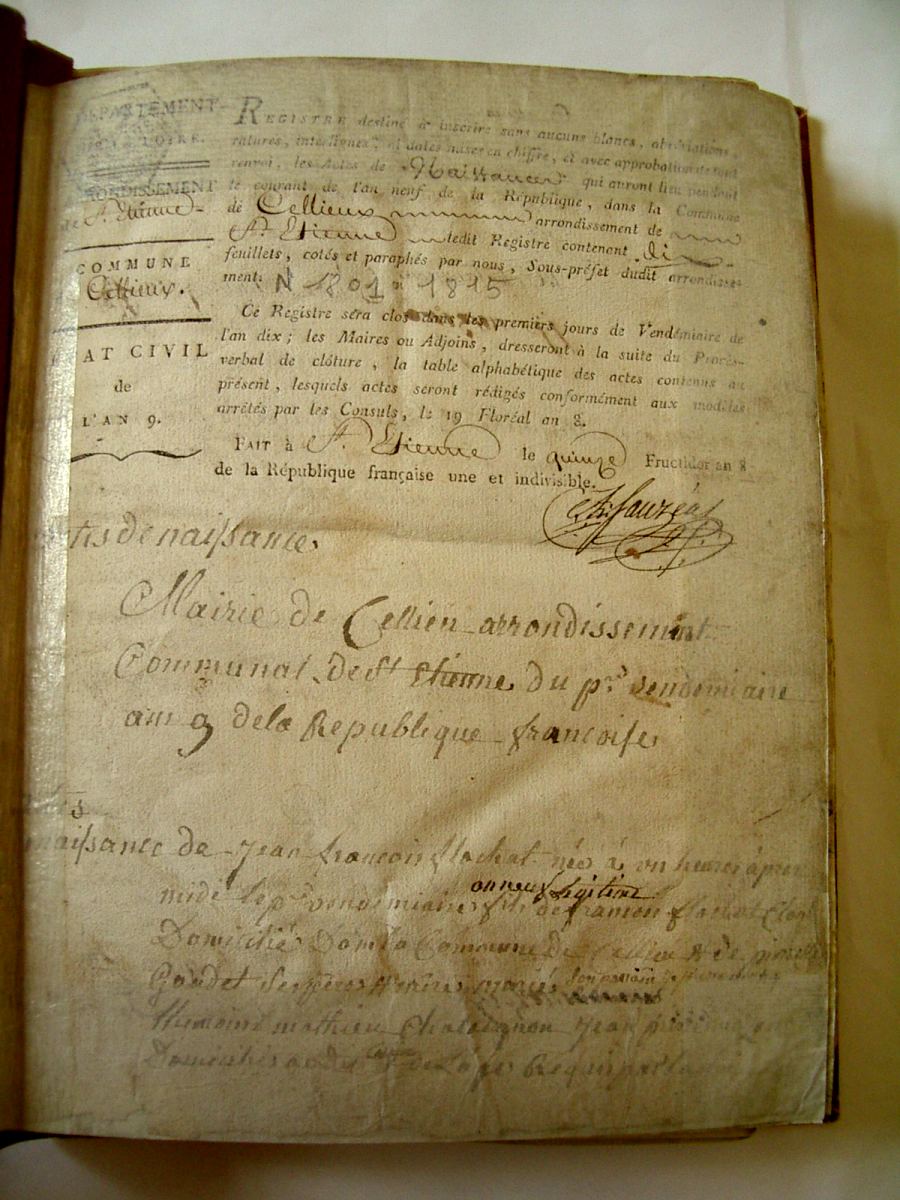 DÉPARTEMENT
LOIRE.
ARRONDISSEMENT
de St. Etienne
COMMUNE
Cellieux.
ÉTAT CIVIL
de
L'AN 9.
REGISTRE destiné à inscrire sans aucuns blancs, abréviations
ratures, interlignes, ni dates mises en chiffre, et avec approbation de tout
renvoi, les Actes de Naissance qui auront lieu pendant
le courant de l'an neuf de la République, dans la Commune
de Cellieux arrondissement de
St. Etienne ledit Registre contenant dix
feuillets, cotés et paraphés par nous, Sous-préfet dudit arrondisse-
ment. N 1801 à 1815
Ce Registre sera clos dans les premiers jours de Vendémiaire de
l'an dix ; les Maires ou Adjoins, dresseront à la suite du Procès-
verbal de clôture, la table alphabétique des actes contenus au
présent, lesquels actes seront rédigés conformément aux modèles
arrêtés par les Consuls, le 19 Floréal an 8.
FAIT à St. Etienne le quinze Fructidor an 8
de la République française une et indivisible.
Sauzéa
de naissance
Mairie de Cellieu arrondissement
Communal de St Etienne du pr. vendemiaire
ann 9 de la Republique francoise
naissance de Jean francois flachat née à un heure après
midé le pr vendemiaire fils de flachat
onneuf legitime
Domicilié Dans la Commune de Cellieu & de
Goudet Ses pères & mères mariés
mathieu Chavaignon Jean